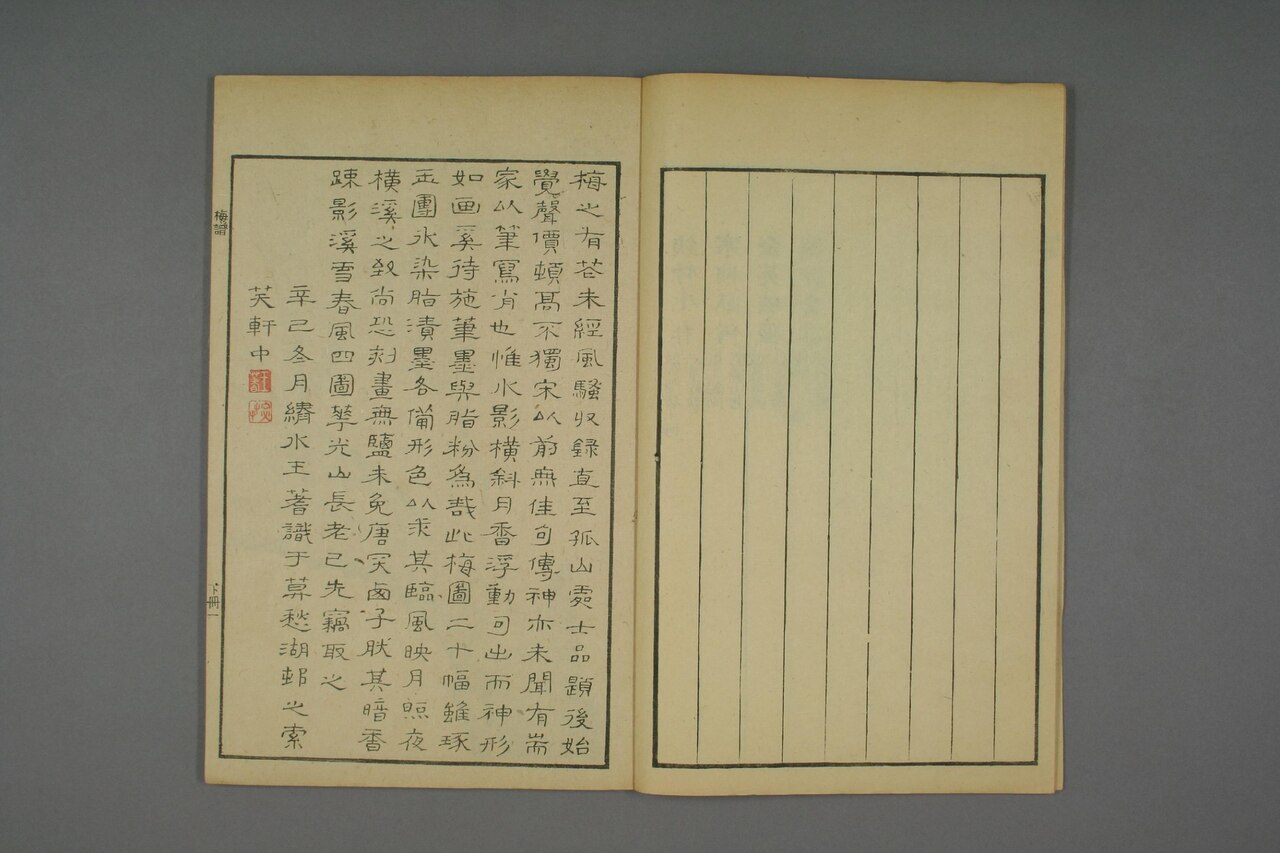 梅之有花未經風騷収録直至孤山處士品題後始
覺聲價頓髙不獨宋以前無佳句傳神亦未聞有耑
家以筆寫肖也惟水影橫斜月香浮動句出而神形
如画奚待施筆墨與脂粉爲哉此梅圖二十幅雖琢
玉團冰染脂漬墨各備形色以求其臨風映月照夜
橫溪之致尚恐刻畫無鹽未免唐突西子肰其暗香
踈影溪雪春風四圖華光山長老已先竊取之
辛巳冬月繡水王蓍識于莫愁湖邨之索
芺軒中
梅譜
下冊一